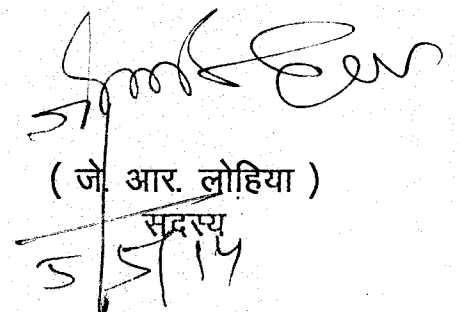 ( जे. आर. लोहिया )
सदस्य
5/5/14